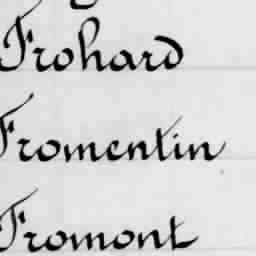 Frohard
Fromentin
Fromont